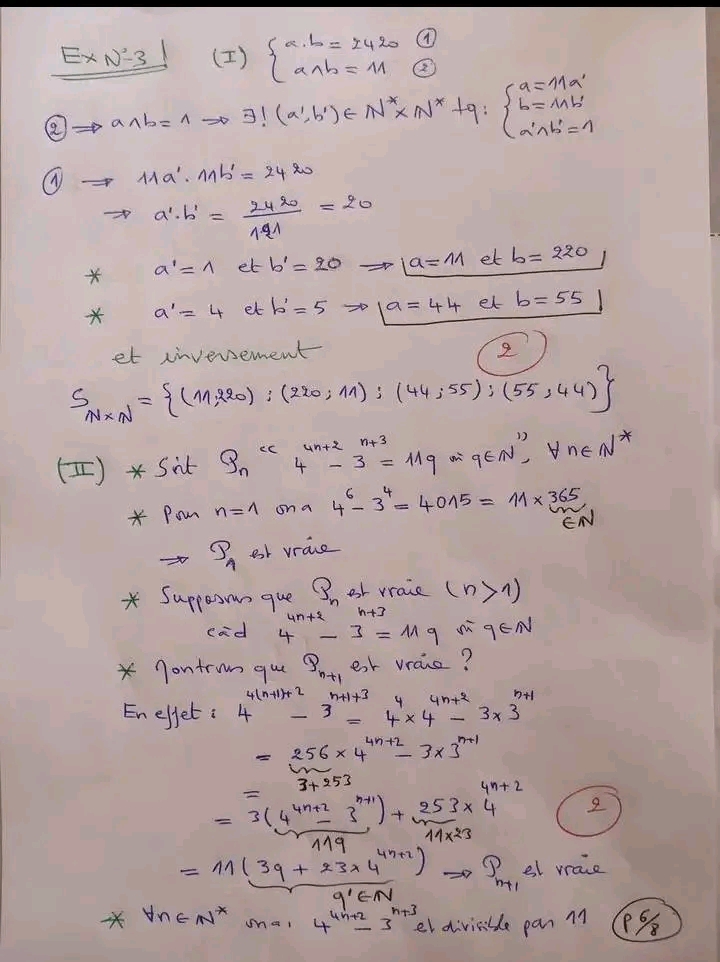 Ex N°3 (I) { a.b = 2420 ①
a∧b = 11 ②
② ⇒ a∧b = 1 ⇒ ∃! (a',b') ∈ N* × N* tq: { a = 11a'
b = 11b'
a'∧b' = 1
① ⇒ 11a'. 11b' = 2420
⇒ a'.b' = 2420/121 = 20
* a' = 1 et b' = 20 ⇒ a = 11 et b = 220
* a' = 4 et b' = 5 ⇒ a = 44 et b = 55
et inversement 2
S_{N×N} = {(11;220) ; (220;11) ; (44;55) ; (55;44)}
(II) * Soit P_n « 4^{4n+2} - 3^{n+3} = 11q où q∈N », ∀n∈N*
* Pour n=1 on a 4^6 - 3^4 = 4015 = 11 × 365
∈N
⇒ P_1 est vraie
* Supposons que P_n est vraie (n>1)
càd 4^{4n+2} - 3^{n+3} = 11q où q∈N
* Montrons que P_{n+1} est vraie ?
En effet : 4^{4(n+1)+2} - 3^{n+1+3} = 4^4 × 4^{4n+2} - 3×3^{n+1}
= 256 × 4^{4n+2} - 3×3^{n+1}
3+253
=
= 3(4^{4n+2} - 3^{n+1}) + 253 × 4^{4n+2} 2
11q 11×23
= 11(3q + 23×4^{4n+2}) ⇒ P_{n+1} est vraie
q'∈N
* ∀n∈N* on a, 4^{4n+2} - 3^{n+3} et divisible par 11 P 6/8